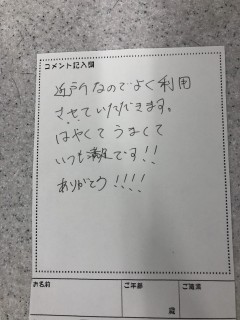 コメント記入欄
近所なのでよく利用
させていただきます。
はやくてうまくて
いつも満足です!!
ありがとう!!!!
お名前
ご年齢
歳
ご職業